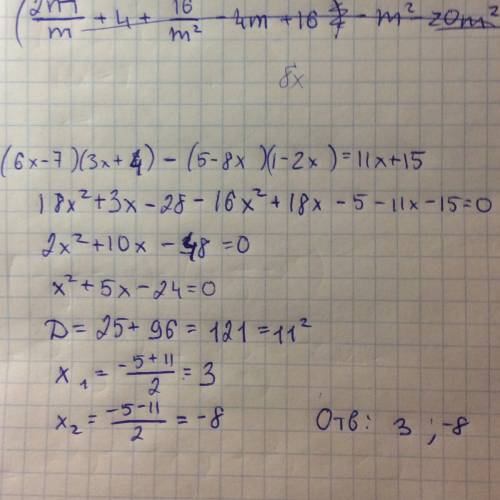 (2m/m + 4 + 16/m² - 4m + 16 - m² - 20m²
8x
(6x-7)(3x+4) - (5-8x)(1-2x) = 11x+15
18x²+3x-28-16x²+18x-5-11x-15=0
2x²+10x-48=0
x²+5x-24=0
D=25+96=121=11²
x₁ = (-5+11)/2 = 3
x₂ = (-5-11)/2 = -8 Отв: 3 ; -8